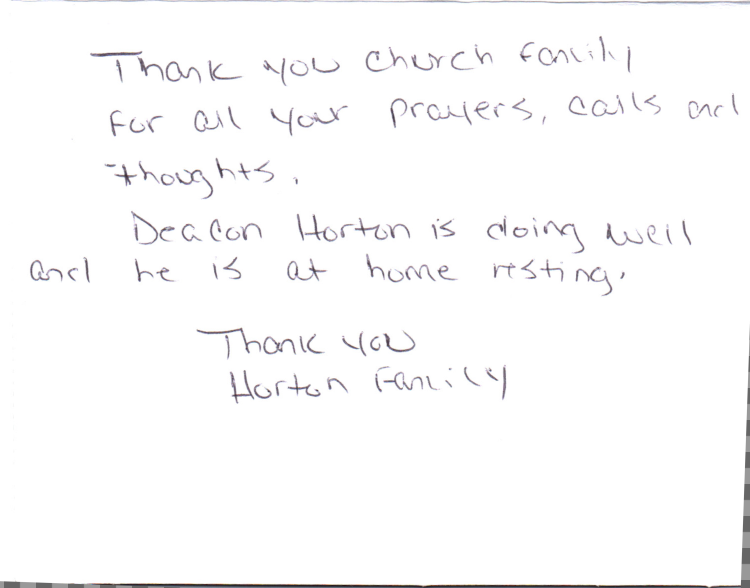 Thank you church family
for all your prayers, calls and
thoughts.
Deacon Horton is doing well
and he is at home resting.
Thank you
Horton Family